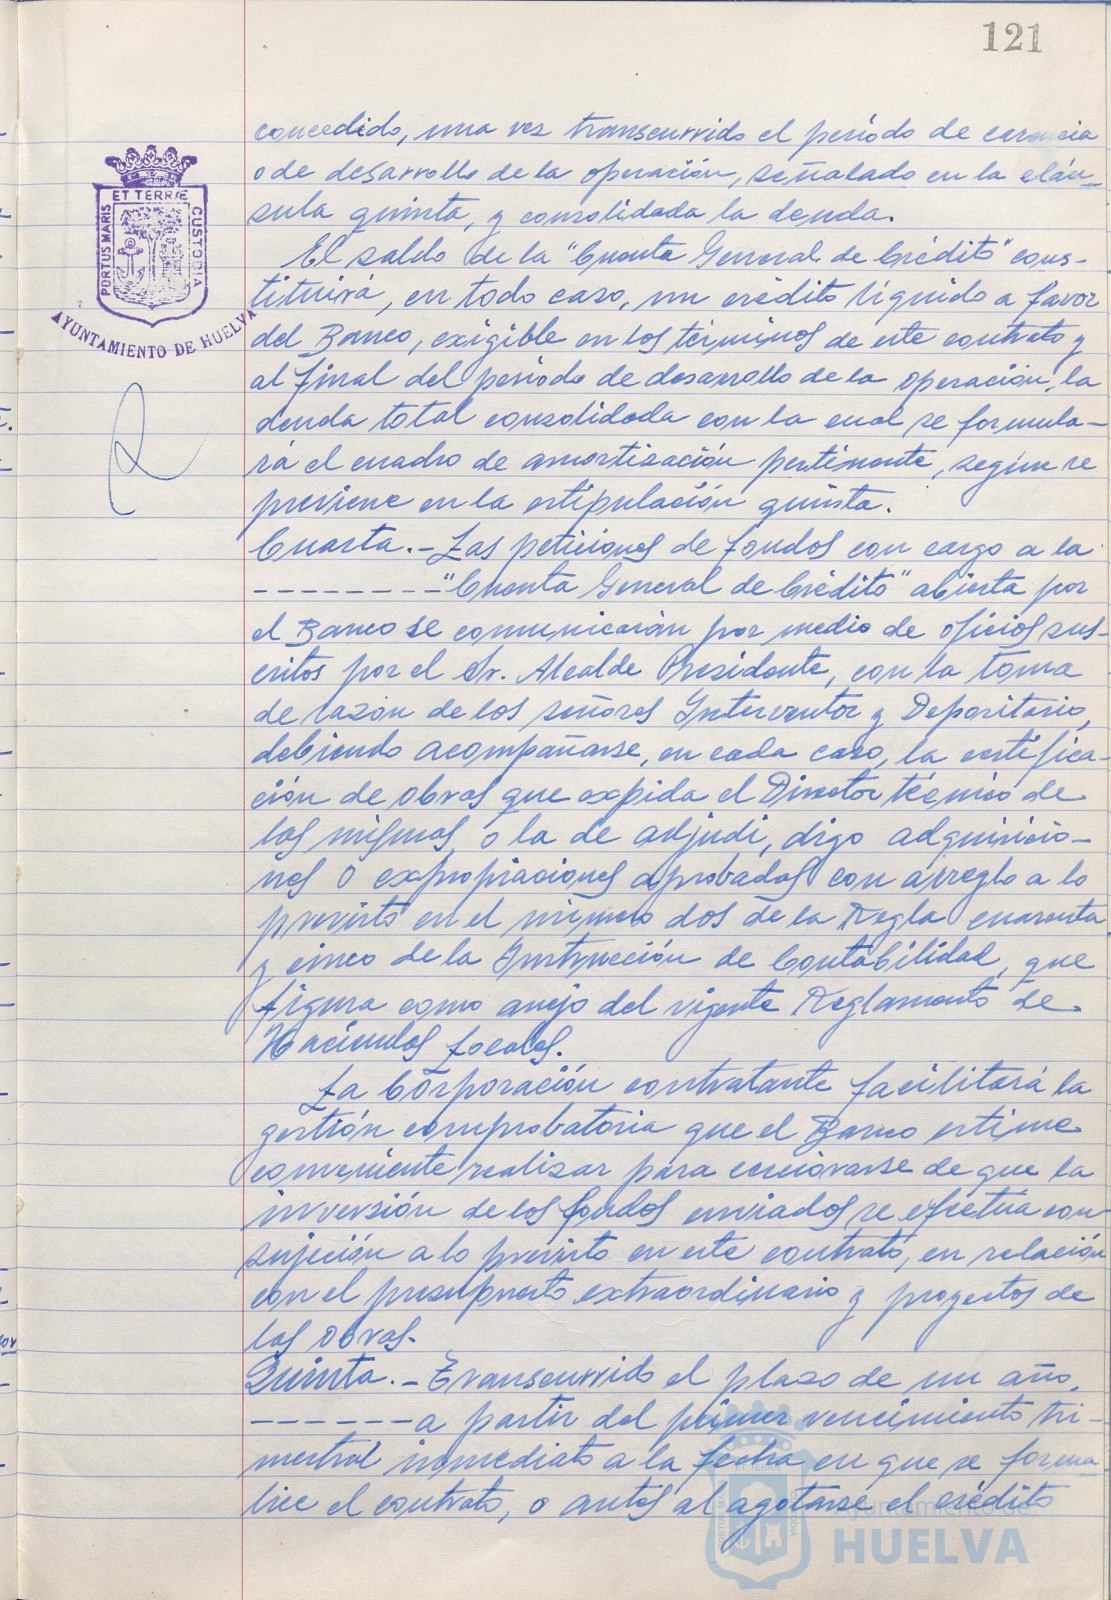 121
concedido, una vez transcurrido el período de carencia
o de desarrollo de la operación, señalado en la cláu-
sula quinta, y consolidada la deuda.
El saldo de la "Cuenta General de Crédito" cons-
tituirá, en todo caso, un crédito líquido a favor
del Banco, exigible en los términos de este contrato y
al final del período de desarrollo de la operación, la
deuda total consolidada con la cual se formula-
rá el cuadro de amortización pertinente, según se
previene en la estipulación quinta.
Cuarta.- Las peticiones de fondos con cargo a la
--------"Cuenta General de Crédito" abierta por
el Banco se comunicarán por medio de oficios sus-
critos por el Sr. Alcalde Presidente, con la toma
de razón de los señores Interventor y Depositario,
debiendo acompañarse, en cada caso, la certifica-
ción de obras que expida el Director técnico de
las mismas, o la de adjudi, digo adquisicio-
nes o expropiaciones aprobadas con arreglo a lo
previsto en el número dos de la Regla cuarenta
y cinco de la Instrucción de Contabilidad, que
figura como anejo del vigente Reglamento de
Haciendas Locales.
La Corporación contratante facilitará la
gestión comprobatoria que el Banco estime
conveniente realizar para cerciorarse de que la
inversión de los fondos enviados se efectúa con
sujeción a lo previsto en este contrato, en relación
con el presupuesto extraordinario y proyectos de
las obras.
Quinta.- Transcurrido el plazo de un año,
------a partir del primer vencimiento tri-
mestral inmediato a la fecha en que se forma
lice el contrato, o antes al agotarse el crédito
PORTUS MARIS ET TERRÆ CUSTODIA
AYUNTAMIENTO DE HUELVA
Ayuntamiento de
HUELVA